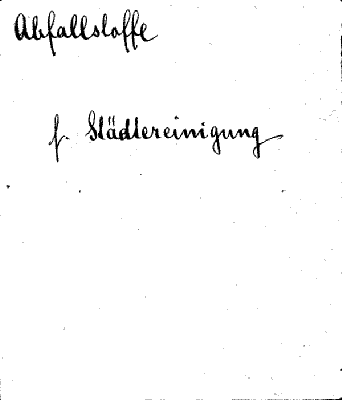 Abfallstoffe
f. Städtereinigung